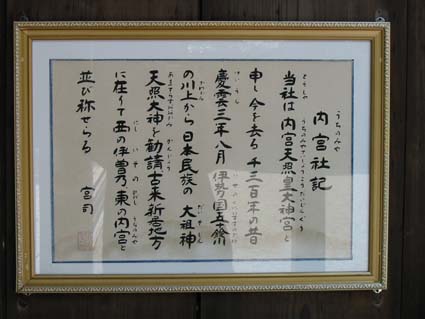 内宮社記
当社は内宮天照皇大神宮と
申し今を去る千三百年の昔
慶雲三年八月伊勢国五十鈴川
の川上から日本民族の大祖神
天照大神を勧請古来新居地方
に在りて西の伊曽乃東の内宮と
並び称せらる 宮司